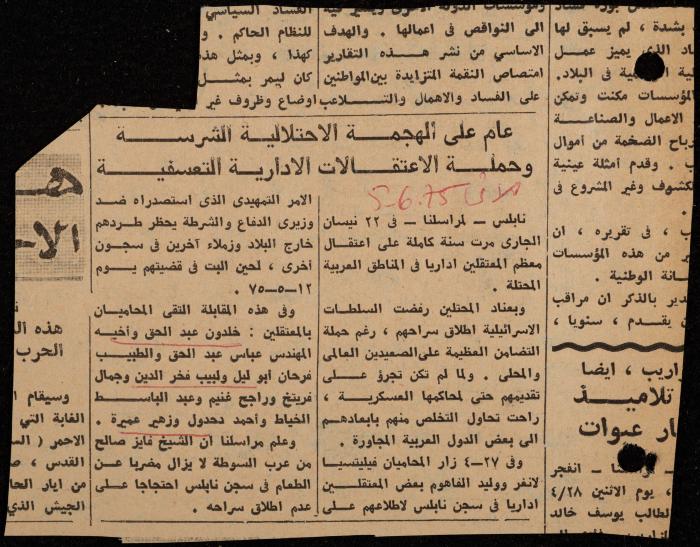 الى النواقص فى اعمالها . والهدف
الاساسي من نشر هذه التقارير
امتصاص النقمة المتزايدة بين المواطنين
على الفساد والاهمال والتلاعب
الفساد السياسي
للنظام الحاكم .
كهذا ، وبمثل هذه
كان ليمر بمثل
اوضاع وظروف غير
عام على الهجمة الاحتلالية الشرسة
وحملة الاعتقالات الادارية التعسفية
5-6.75
نابلس - لمراسلنا - فى ٢٢ نيسان
الجارى مرت سنة كاملة على اعتقال
معظم المعتقلين اداريا فى المناطق العربية
المحتلة .
وبعناد المحتلين رفضت السلطات
الاسرائيلية اطلاق سراحهم ، رغم حملة
التضامن العظيمة على الصعيدين العالمى
والمحلى . ولما لم تكن تجرؤ على
تقديمهم حتى لمحاكمها العسكرية ،
راحت تحاول التخلص منهم بابعادهم
الى بعض الدول العربية المجاورة .
وفى ٢٧-٤ زار المحاميان فيليتسيا
لانغر ووليد الفاهوم بعض المعتقلين
اداريا فى سجن نابلس لاطلاعهم على
الامر التمهيدى الذى استصدراه ضد
وزيرى الدفاع والشرطة يحظر طردهم
خارج البلاد وزملاء آخرين فى سجون
أخرى ، لحين البت فى قضيتهم يوم
١٢-٥-٧٥ .
وفى هذه المقابلة التقى المحاميان
بالمعتقلين : خلدون عبد الحق وأخيه
المهندس عباس عبد الحق والطبيب
فرحان أبو ليل ولبيب فخر الدين وجمال
فريتخ وراجح غنيم وعبد الباسط
الخياط وأحمد دحدول وزهير عميرة .
وعلم مراسلنا ان الشيخ فايز صالح
من عرب السوطة لا يزال مضربا عن
الطعام فى سجن نابلس احتجاجا على
عدم اطلاق سراحه .
بشدة ، لم يسبق لها
الذى يميز عمل
فى البلاد.
المؤسسات مكنت وتمكن
الاعمال والصناعة
الضخمة من أموال
. وقدم أمثلة عينية
وغير المشروع فى
، فى تقريره ، ان
من هذه المؤسسات
الوطنية .
بالذكر ان مراقب
يقدم ، سنويا ،
، ايضا
تلاميذ
عبوات
- انفجر
، يوم الاثنين ٤/٢٨
الطالب يوسف خالد
هذه
الحرب
وسيقام
الغابة التي
الاحمر
القدس ،
من ايار
الجيش الذى